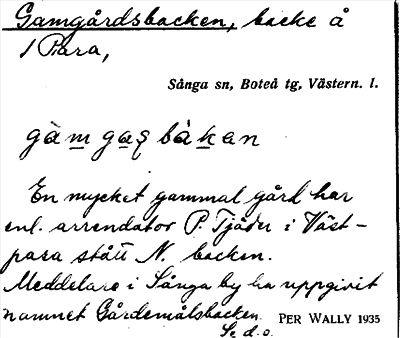 Gamgårdsbacken, backe å
1 Para,
Sånga sn, Boteå tg, Västern. l.
gàm gaş bàkan
En mycket gammal gård har
enl. arrendator P. Tjäder i Väst-
para stått N. backen.
Meddelare i Sånga by ha uppgivit
namnet Gårdemålsbacken.
Se d. o.
PER WALLY 1935